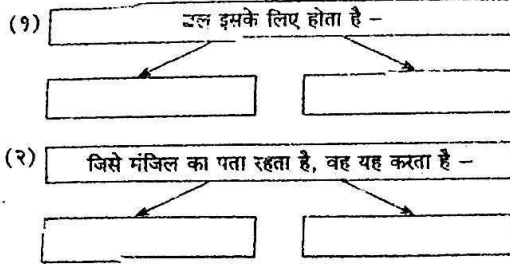 (१) इसके लिए होता है –
(२) जिसे मंजिल का पता रहता है, वह यह करता है –